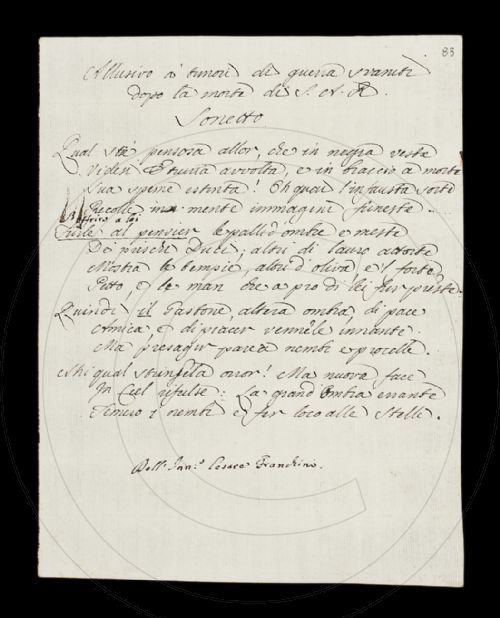 83
Allusivo a' timori di guerra svaniti
dopo la morte di S. A. R.
Sonetto
Qual stè pensosa allor, che in negra veste
Videsi Etruria avvolta, e in braccio a morte
Sua speme estinta! Oh quai l'infausta sorte
Recolle in mente immagini funeste
al pensier le pallid'ombre e meste
De' prischi Duci; altri di lauro attorte
Mostra le tempie, altri d'oliva, e 'l forte
Petto, e le man che a prò di lei fur preste.
Quindi il Gastone, altera ombra, di pace
Amica, e di piacer vennele innante
Ma presagir parea nembi e procelle.
Ahi qual orror! Ma nuova face
In Ciel rifulse: La grand'Ombra errante
i nembi e fer loco alle Stelle.
Dell' Cesare Franchini.